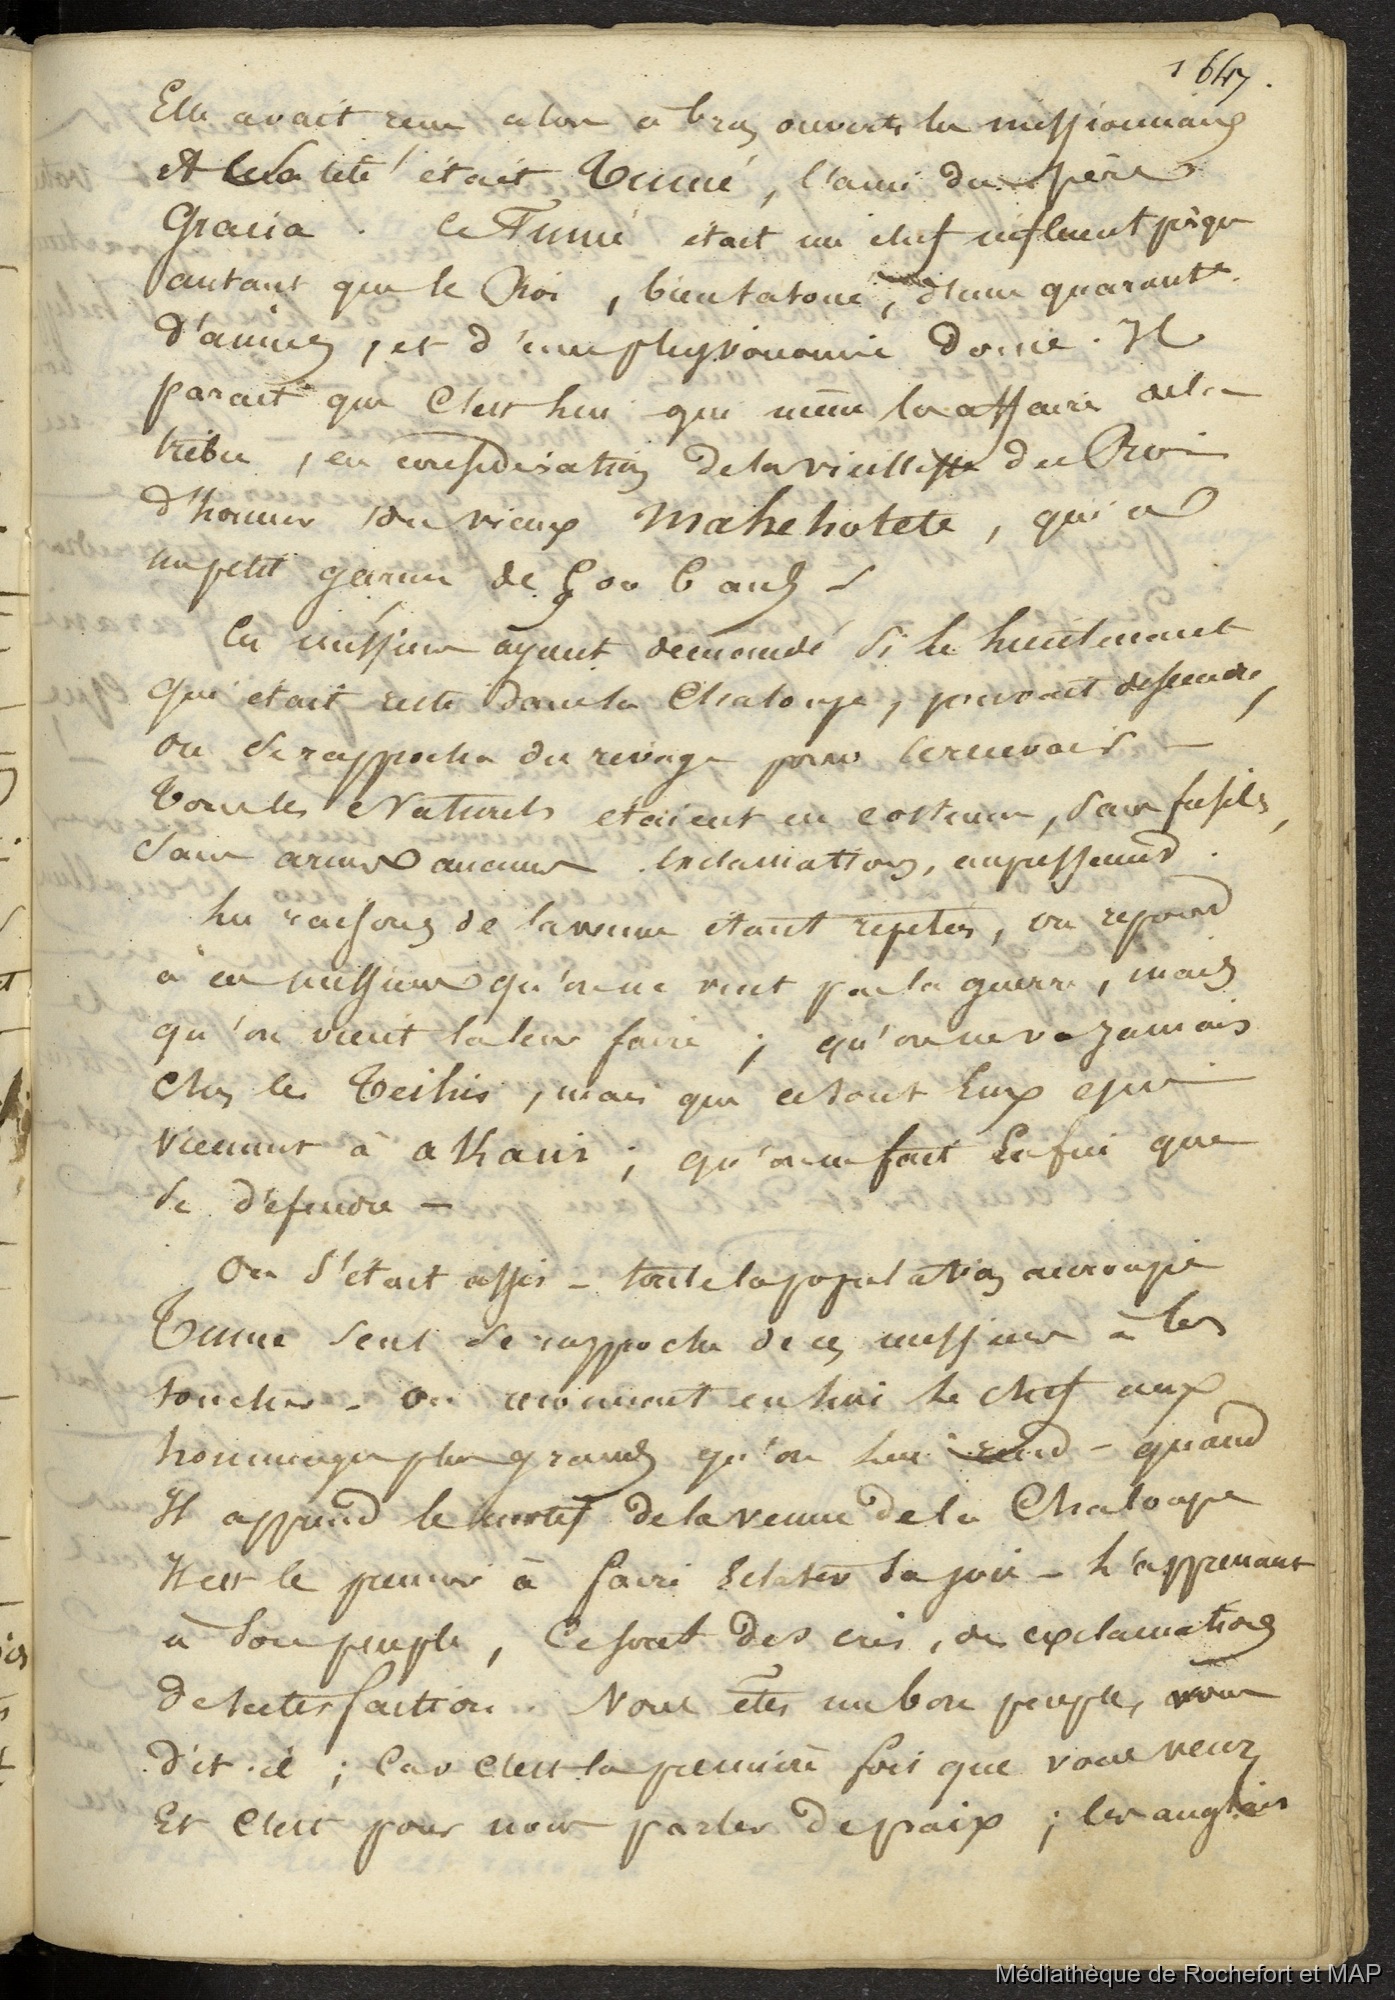 1647.
Elle avait reçu alors à bras ouverts les missionnaires
A la tête était Tumé, l'ami du père
Gracia. Ce Tumé était un chef influent presque
autant que le Roi, bien tatoué, d'une quarante.
d'années, et d'une physionomie douce. Il
parait que c'est lui qui mène les affaires de la
tribu, en considération de la vieillesse du Roi
d'honneur du vieux Mahehotete, qui a
un petit de 500 Cauds
Ces messieurs ayant demandé si le lieutenant
qui était resté dans la Chaloupe, pouvait descendre,
ou se rapprocher du rivage pour
Tous les Naturels étaient en costume, sans fusils,
sans armes aucunes exclamations, empressement.
Les raisons de la venue étant repetées, on repond
à ces messieurs qu'on ne veut pas la guerre, mais
qu'on vient la leur faire ; qu'on ne va jamais
chez les Teihis, mais que ce sont Eux qui
viennent à aKauis ; qu'on ne fait Enfin que
se défendre —
On s'était assis – toute la population accroupie
Tumé seul se rapproche de ces messieurs à les
toucher – On reconnait en lui le chef aux
hommages plus grands qu'on lui rend – quand
Il apprend le motif de la venue de la Chaloupe
Il est le premier à faire Eclater sa joie – L'apprenant
à son peuple, Ce sont des cris, des exclamations
de satisfaction. Vous êtes un bon peuple, nous
dit-il ; Car c'est la première fois que vous venez
Et c'est pour nous parler de paix ; les anglais
Médiathèque de Rochefort et MAP